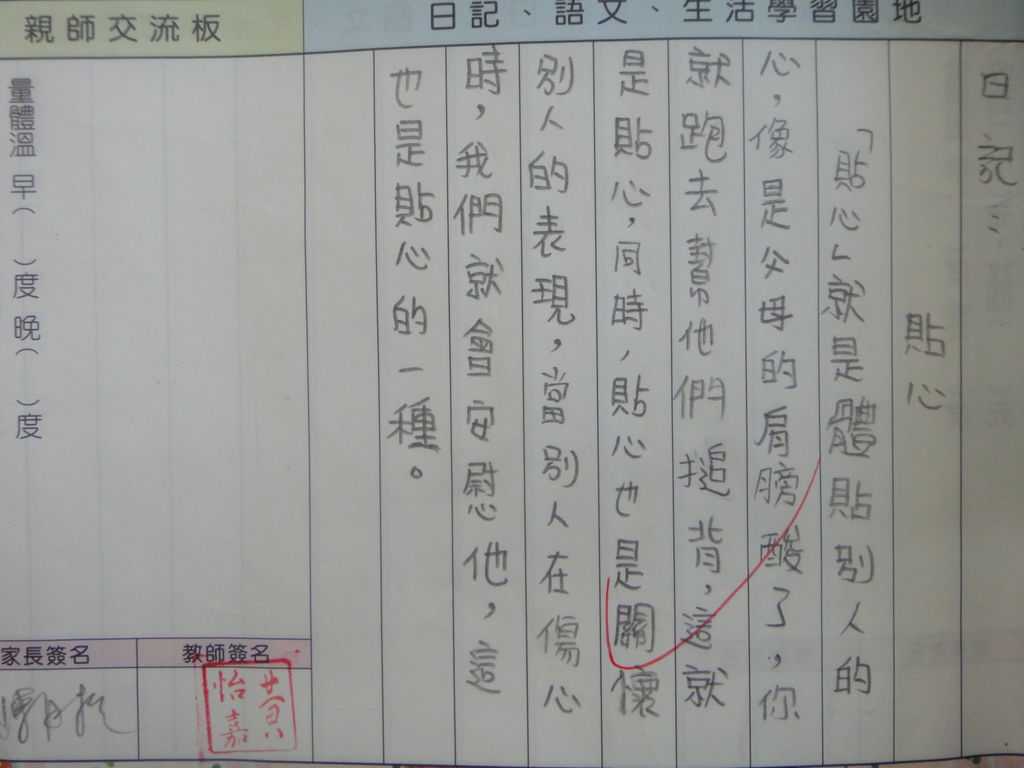 日記、語文、生活學習園地
親師交流板
日記：
貼心
「貼心」就是體貼別人的
心，像是父母的肩膀酸了，你
就跑去幫他們搥背，這就
是貼心，同時，貼心也是關懷
別人的表現，當別人在傷心
時，我們就會安慰他，這
也是貼心的一種。
量體溫 早( )度 晚( )度
教師簽名
黃怡嘉
家長簽名